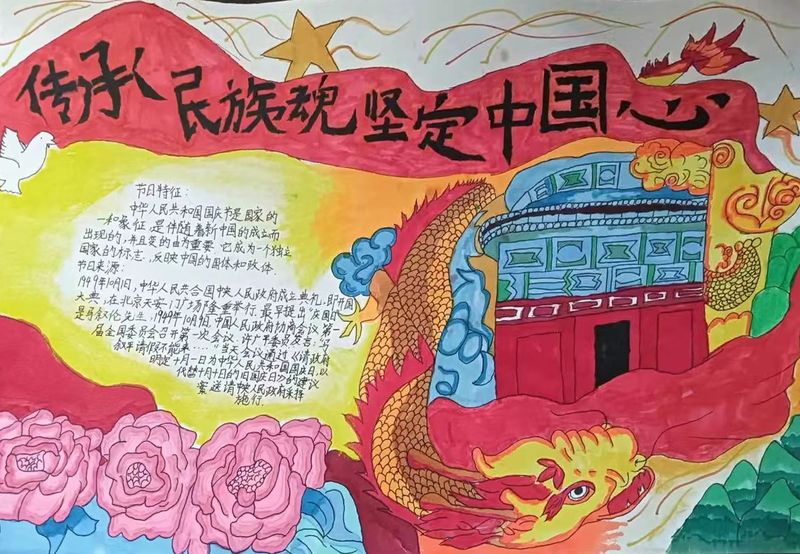 传承人民族魂坚定中国心
节日特征：
中华人民共和国国庆节是国家的
一和象征,是伴随着新中国的成立而
出现的,并且变的由为重要.它成为一个独立
国家的标志,反映中国的国体和政体.
节日来源：
1949年10月1日,中华人民共合国中央人民政府成立典礼,即开国
大典,在北京天安门广场隆重举行.最早提出"庆国日"
是马叙伦先生.1949年10月9日,中国人民政府协商会议第一
届全国委员会召开第一次会议.许广平委员发言："马
叙平请假不能来……"当天会议通过《请政府
明定十月一日为中华人民共和国国庆日,以
代替十月十日的旧国庆日》的建议
案送请中央人民政府采择
施行.